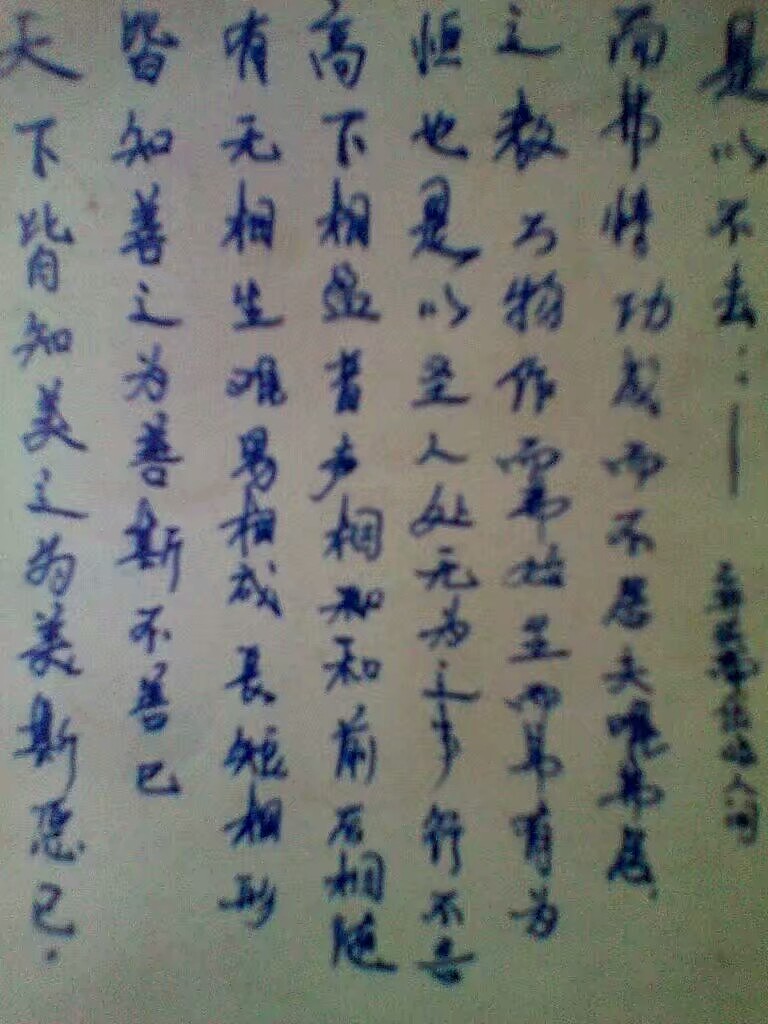 天下皆知美之为美斯恶已.
皆知善之为善斯不善已
有无相生难易相成长短相形
高下相盈音声相和前后相随
恒也是以圣人处无为之事行不言
之教万物作而弗始生而弗有为
而弗恃功成而不居夫唯弗居.
是以不去…—
人间